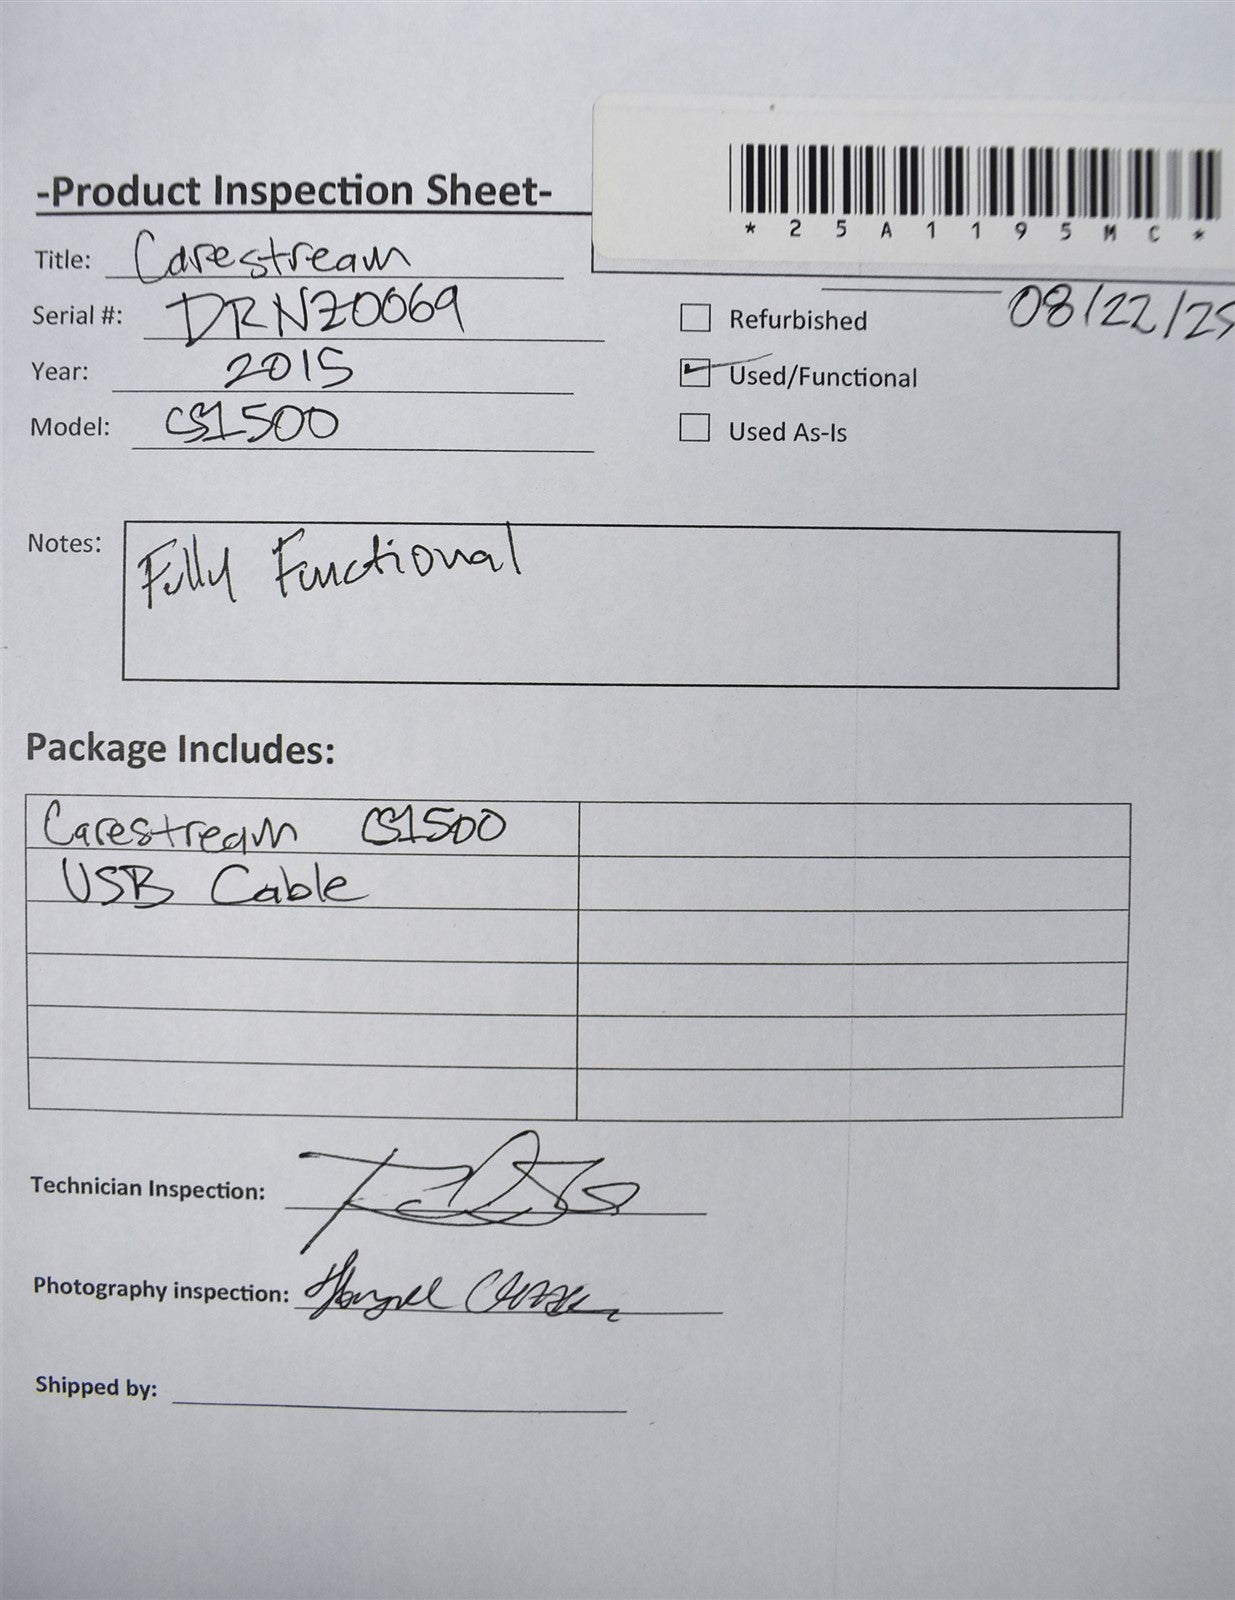 *25A1195MC*
-Product Inspection Sheet-
Title: Carestream
Serial #: DRNZ0069
08/22/25
Refurbished
Year: 2015
Used/Functional
Model: CS1500
Used As-Is
Notes: Fully Functional
Package Includes:
Carestream CS1500
USB Cable
Technician Inspection:
Photography inspection:
Shipped by: